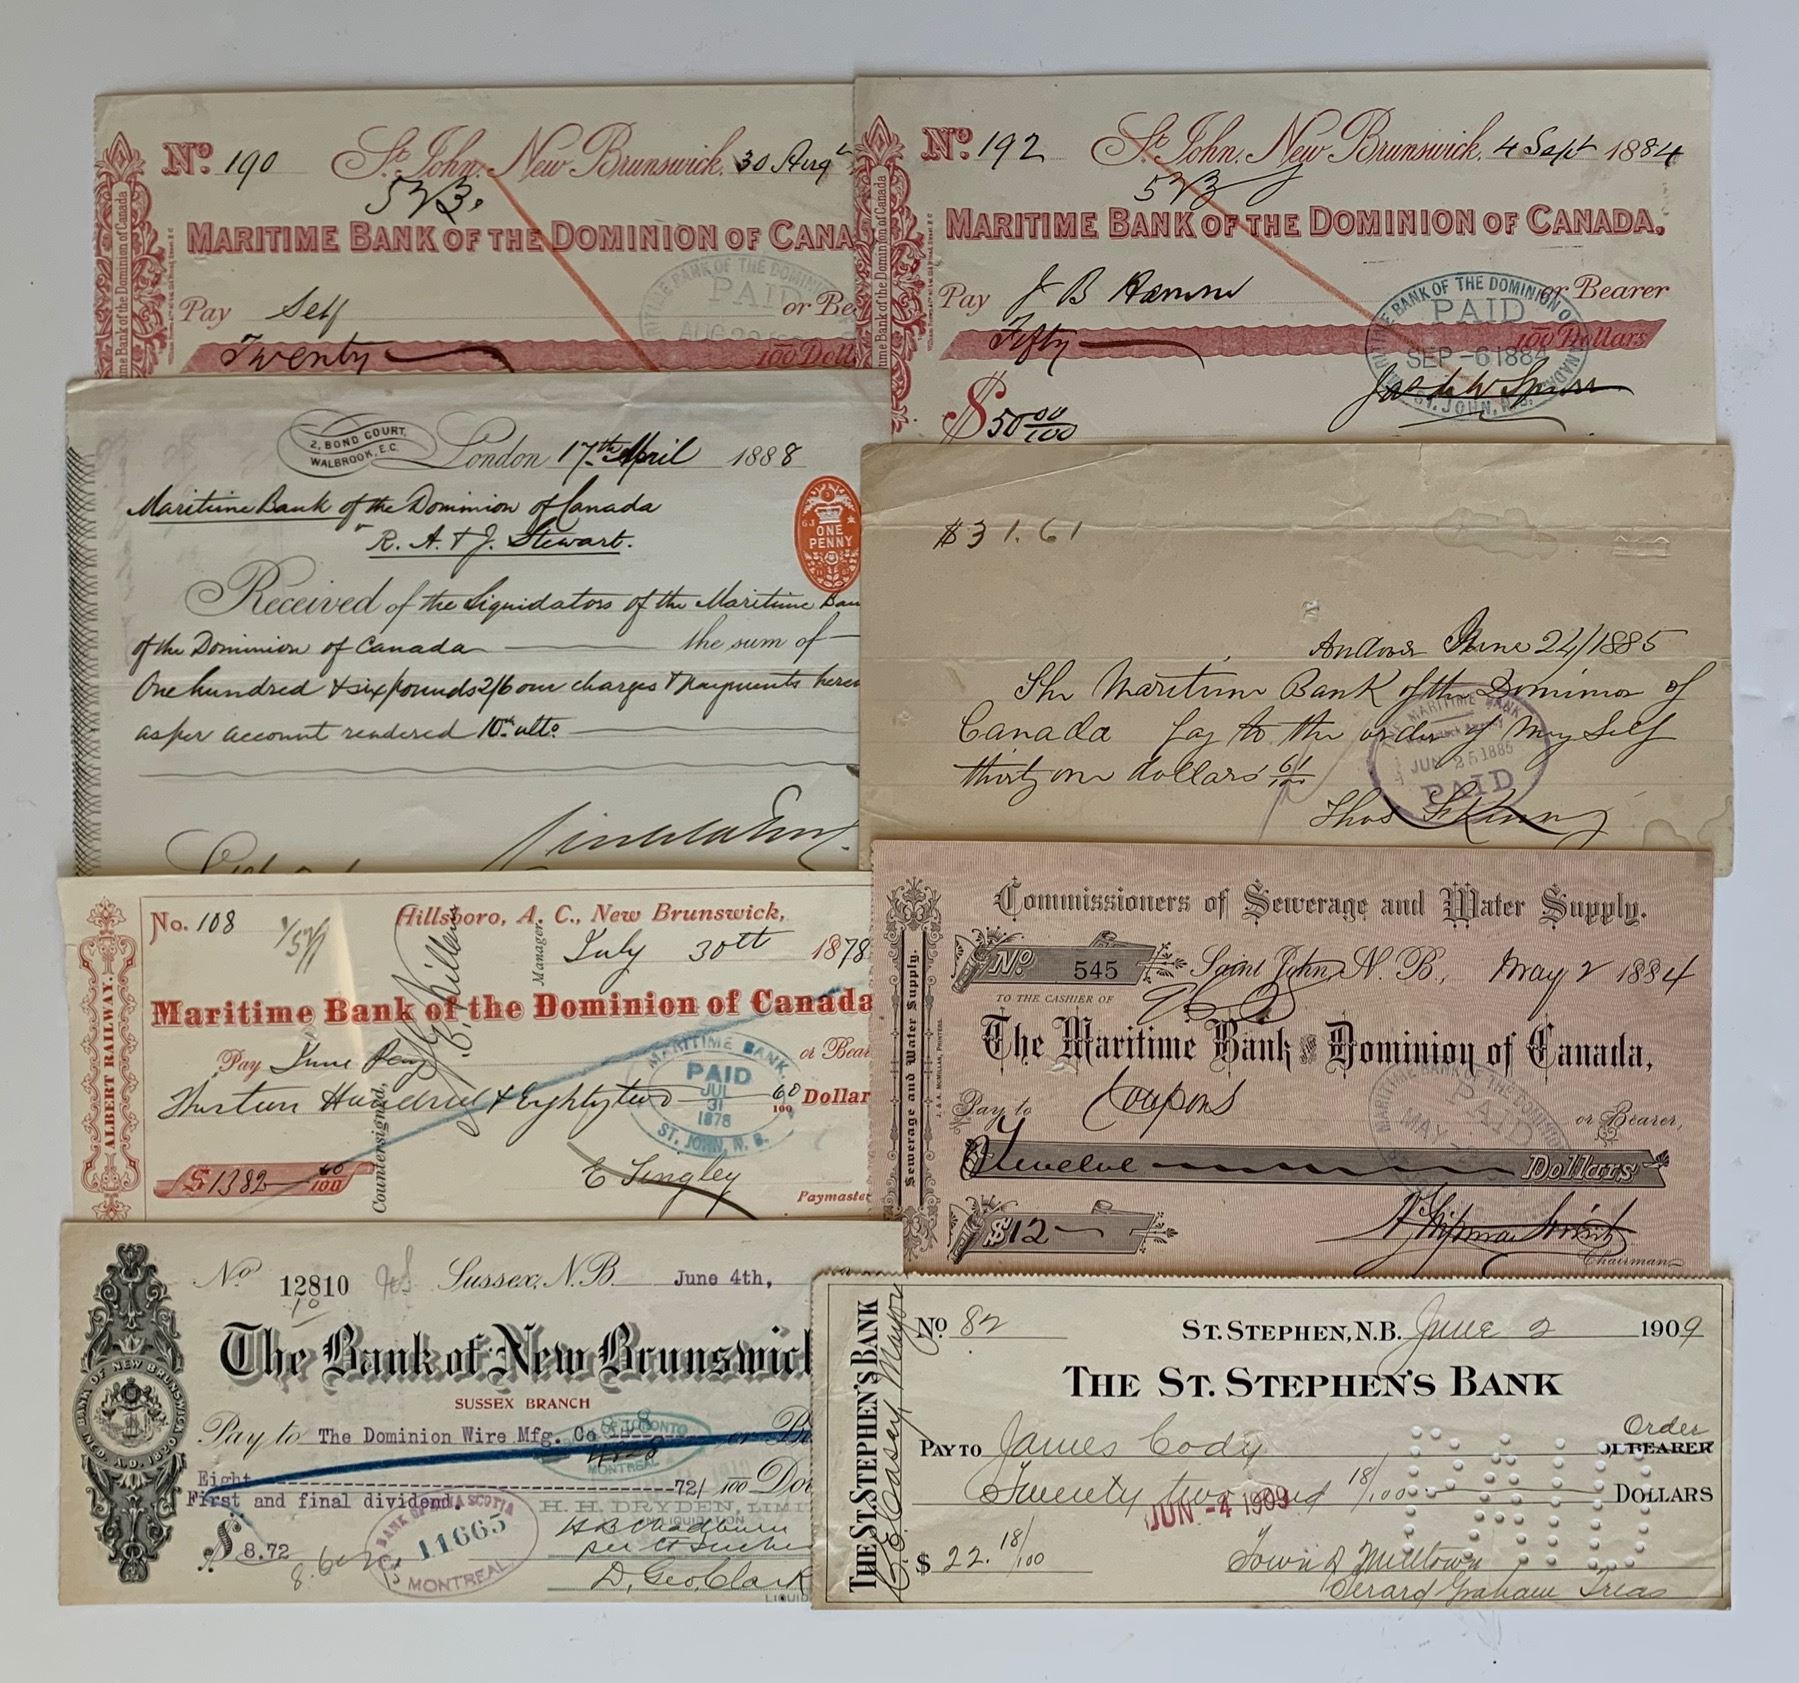 No. 190 St. John, New Brunswick, 30 Augt
523.
MARITIME BANK OF THE DOMINION OF CANA
Pay Self or Be
Twenty 100 Doll
MARITIME BANK OF THE DOMINION
PAID
AUG 30
me Bank of the Dominion of Canada
No. 192 St. John, New Brunswick, 4 Sept 1884
523
MARITIME BANK OF THE DOMINION OF CANADA.
Pay J B Hamm or Bearer
Fifty 100 Dollars
$ 50 00/100
MARITIME BANK OF THE DOMINION OF CANADA
PAID
SEP -6 1884
ST. JOHN, N.B.
ime Bank of the Dominion of Canada
2, BOND COURT,
WALBROOK, E.C.
London 17th April 1888
Maritime Bank of the Dominion of Canada
R. A. & J. Stewart.
ONE
PENNY
Received of the Liquidators of the Maritime Ban
of the Dominion of Canada the sum of
One hundred & six pounds 2/6 our charges & payments herei
as per account rendered 10th ulto.
$31.61
Andover June 24/1885
The Maritime Bank of the Dominion of
Canada Pay to the order of My Self
thirty one dollars 61/100
THE MARITIME BANK
JUN 25 1885
PAID
Thos
No. 108 Hillsboro, A. C., New Brunswick,
July 30th 1878
Maritime Bank of the Dominion of Canada
Pay June Pay or Bear
Thirteen Hundred & Eighty two 60/100 Dollar
$ 1382 60/100
E Tingley
Paymaster
Countersigned, Manager.
ALBERT RAILWAY.
MARITIME BANK.
PAID
JUL
31
1878
ST. JOHN, N. B.
Commissioners of Sewerage and Water Supply.
No 545 Saint John, N. B., May 2 1884
TO THE CASHIER OF
The Maritime Bank of the Dominion of Canada,
Pay to Coupons or Bearer,
Twelve Dollars
$ 12
Chairman
Sewerage and Water Supply.
J. & A. MCMILLAN, PRINTERS.
MARITIME BANK OF THE DOMINION
PAID
MAY
No 12810 Sussex, N.B. June 4th,
10
The Bank of New Brunswick
SUSSEX BRANCH
Pay to The Dominion Wire Mfg. Co or B
Eight 72/ 100 Dol
First and final dividend.
$ 8.72
H. H. DRYDEN, LIMI
IN LIQUIDATION
D. Geo. Clark
LIQUID
BANK OF NEW BRUNSWICK
INCD. A.D. 1820
TORONTO
MONTREAL
BANK OF NOVA SCOTIA
11665
MONTREAL
No 82 ST. STEPHEN, N.B. June 2 1909
THE ST. STEPHEN'S BANK
PAY TO James Cody Order
OR BEARER
Twenty two and 18/100 DOLLARS
JUN -4 1909
PAID
$ 22. 18/100 Town of Milltown
Gerard Graham Treas
THE ST. STEPHEN'S BANK
Casey Mayor